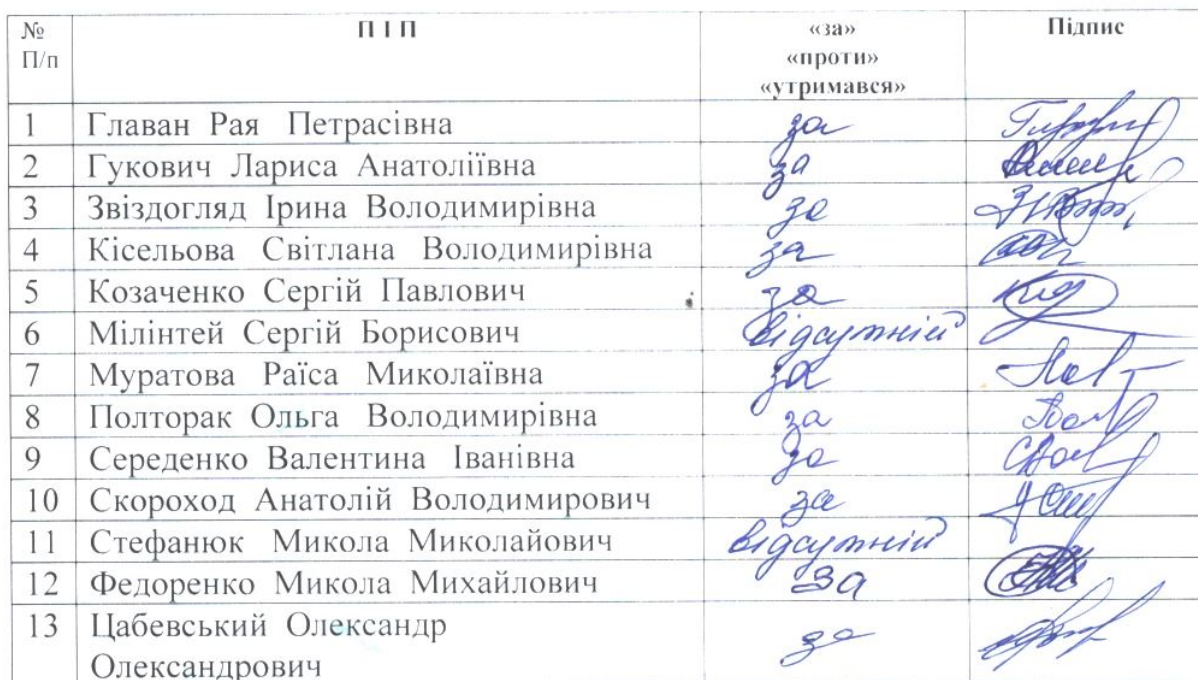 № П І П «за» Підпис
П/п «проти»
«утримався»
1 Главан Рая Петрасівна за
2 Гукович Лариса Анатоліївна за
3 Звіздогляд Ірина Володимирівна за
4 Кісельова Світлана Володимирівна за
5 Козаченко Сергій Павлович за
6 Мілінтей Сергій Борисович відсутній
7 Муратова Раїса Миколаївна за
8 Полторак Ольга Володимирівна за
9 Середенко Валентина Іванівна за
10 Скороход Анатолій Володимирович за
11 Стефанюк Микола Миколайович відсутній
12 Федоренко Микола Михайлович за
13 Цабевський Олександр за
Олександрович